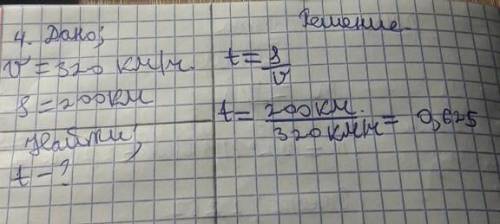 4. Дано;
Решение
v = 320 км/ч.
t = s/v
s = 200 км
t = 200 км. / 320 км/ч = 0,625
Найти;
t - ?